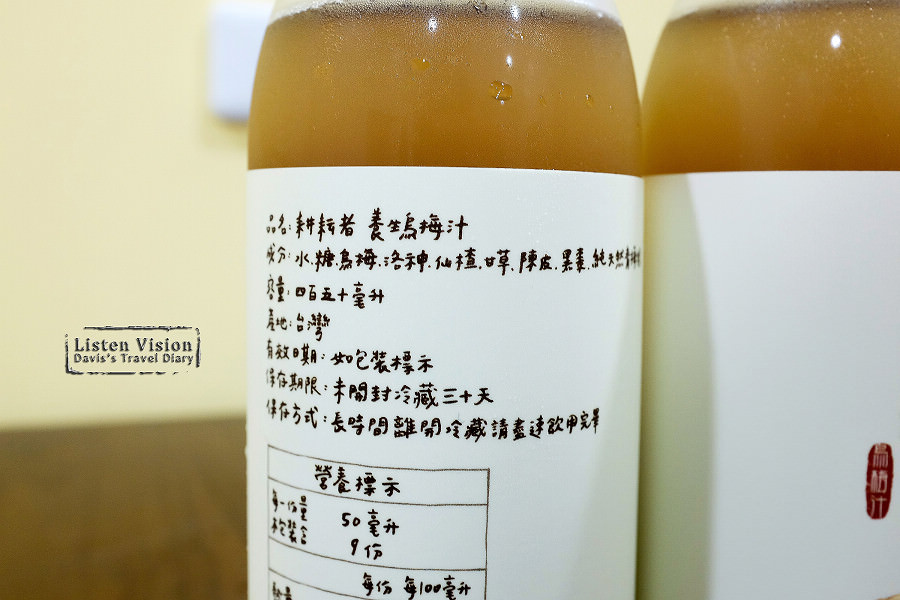 品名:耕耘者 養生烏梅汁
成分:水.糖.烏梅.洛神.仙楂.甘草.陳皮.黑棗.純天然
容量:四百五十毫升
產地:台灣
有效日期:如包裝標示
保存期限:未開封冷藏三十天
保存方式:長時間離開冷藏請盡速飲用完畢
營養標示
每一份量 50毫升
本包裝含 9份
每份 每100毫升
熱量
Listen Vision
Davis's Travel Diary
烏梅汁